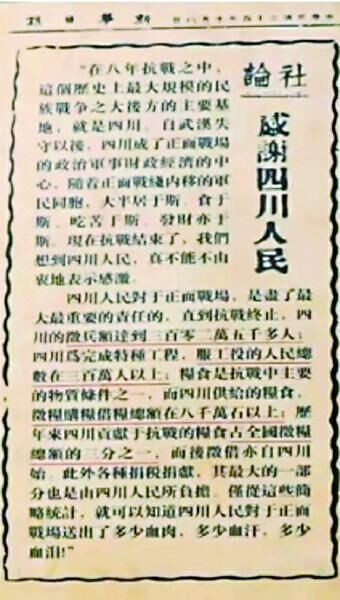 報日華新
社論
感謝四川人民
“在八年抗戰之中，
這個歷史上最大規模的民
族戰争之大後方的主要基
地，就是四川。自武漢失
守以後，四川成了正面戰場
的政治軍事財政經濟的中
心，隨着正面戰綫内移的軍
民同胞，大半居于斯、食于
斯、吃苦于斯、發財亦于
斯。現在抗戰結束了，我們
想到四川人民，真不能不由
衷地表示感激。
四川人民對于正面戰場，是盡了最
大最重要的責任的，直到抗戰終止，四
川的徵兵額達到三百零二萬五千多人；
四川爲完成特種工程，服工役的人民總
數在三百萬人以上；糧食是抗戰中主要
的物質條件之一，而四川供給的糧食，
徵糧購糧借糧總額在八千萬石以上；歷
年來四川貢獻于抗戰的糧食占全國徵糧
總額的三分之一，而後徵借亦自四川
始。此外各種捐税捐獻，其最大的一部
分也是由四川人民所負擔。僅從這些簡
略統計，就可以知道四川人民對于正面
戰場送出了多少血肉，多少血汗，多少
血泪！”